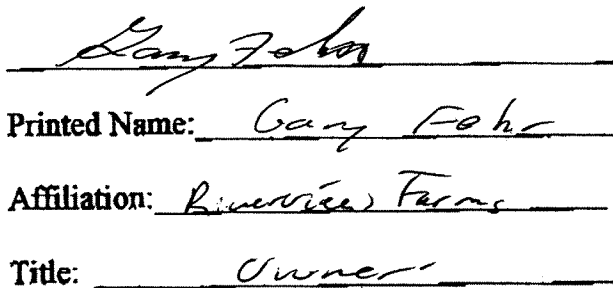 Gary Fehr
Printed Name: Gary Fehr
Affiliation: Riverview Farms
Title: Owner